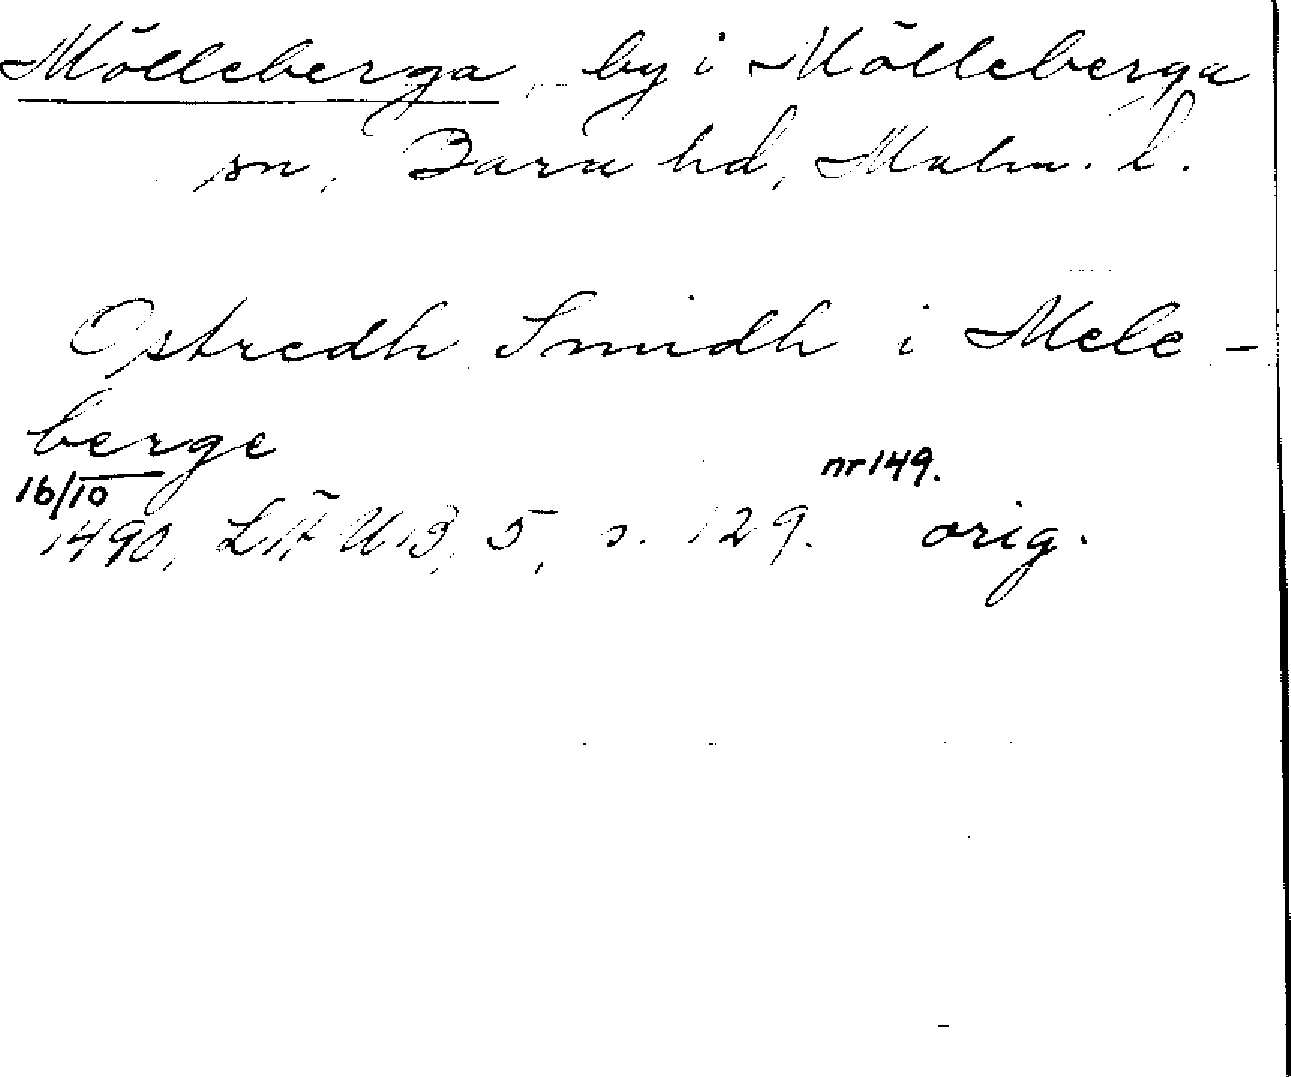 Mölleberga, by i Mölleberga
sn, Bara hd, Malm. l.
Ostredh Smidh i Mele-
berge
nr 149.
16/10
1490, LÄUB, 5, s. 129. orig.